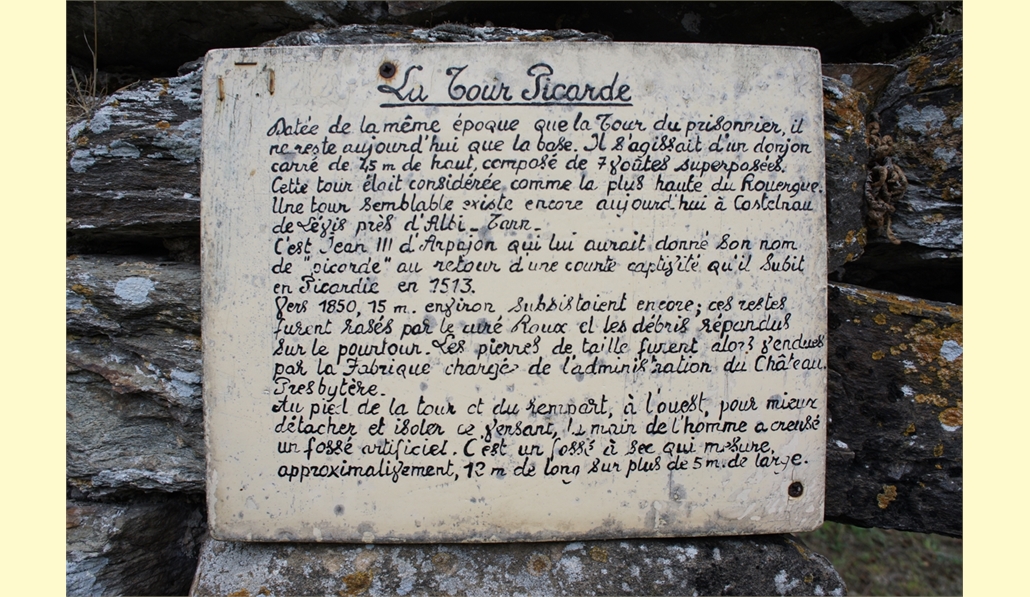 La Tour Picarde
Datée de la même époque que la Tour du prisonnier, il
ne reste aujourd'hui que la base. Il s'agissait d'un donjon
carré de 45 m de haut, composé de 7 voûtes superposées.
Cette tour était considérée comme la plus haute du Rouergue.
Une tour semblable existe encore aujourd'hui à Castelnau
de Lévis près d'Albi - Tarn -
C'est Jean III d'Arpajon qui lui aurait donné son nom
de "picarde" au retour d'une courte captivité qu'il subit
en Picardie en 1513.
Vers 1850, 15 m. environ subsistaient encore ; ces restes
furent rasés par le curé Roux et les débris répandus
sur le pourtour. Les pierres de taille furent alors vendues
par la Fabrique chargée de l'administration du Château.
Presbytère.
Au pied de la tour et du rempart, à l'ouest, pour mieux
détacher et isoler ce versant, la main de l'homme a creusé
un fossé artificiel. C'est un fossé à sec qui mesure,
approximativement, m de long sur plus de 5 m. de large.